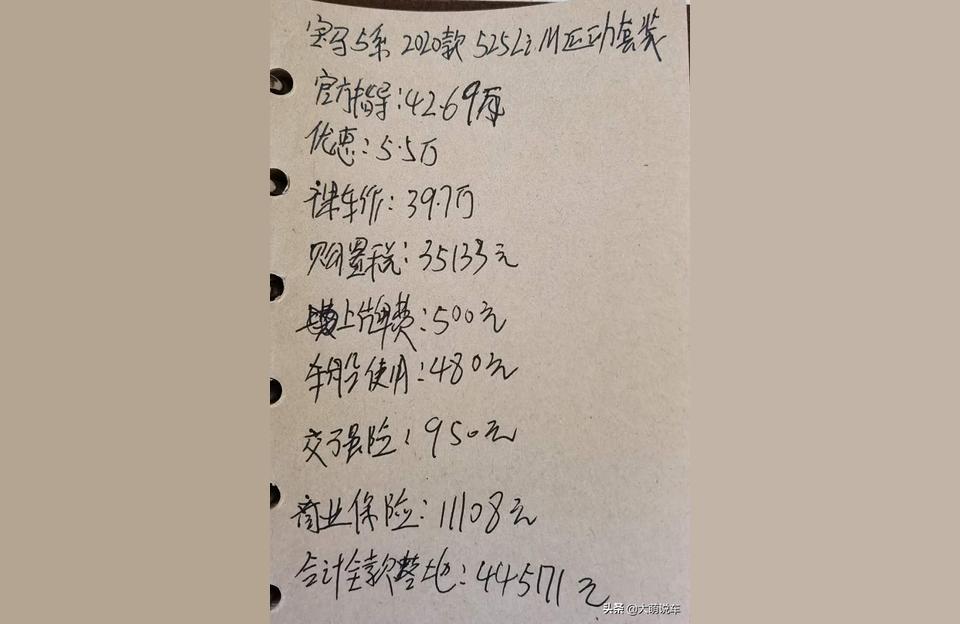 宝马5系 2020款 525Li M运动套装
官方指导:42.69万
优惠:5.5万
裸车价:39.7万
购置税:35133元
上牌费:500元
车船使用:480元
交强险:950元
商业保险:11108元
合计全款落地:445171元
头条 @大萌说车